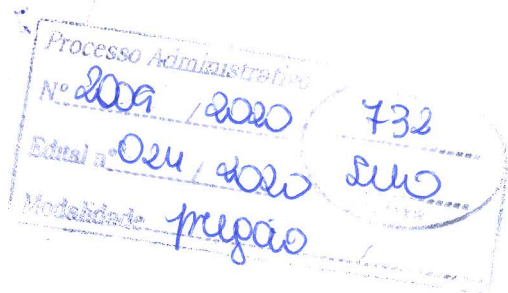 Processo Administrativo
Nº 2009 / 2020 732
Edital nº 024 / 2020
Modalidade pregão /